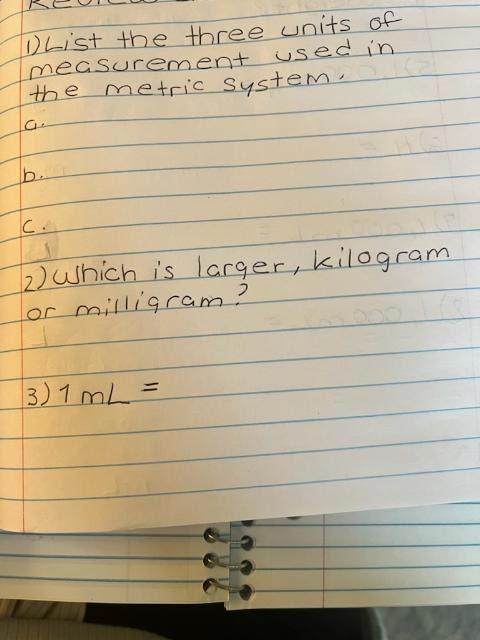 1) List the three units of
measurement used in
the metric system.
a.
b.
c.
2) Which is larger, kilogram
or milligram?
3) 1 mL =